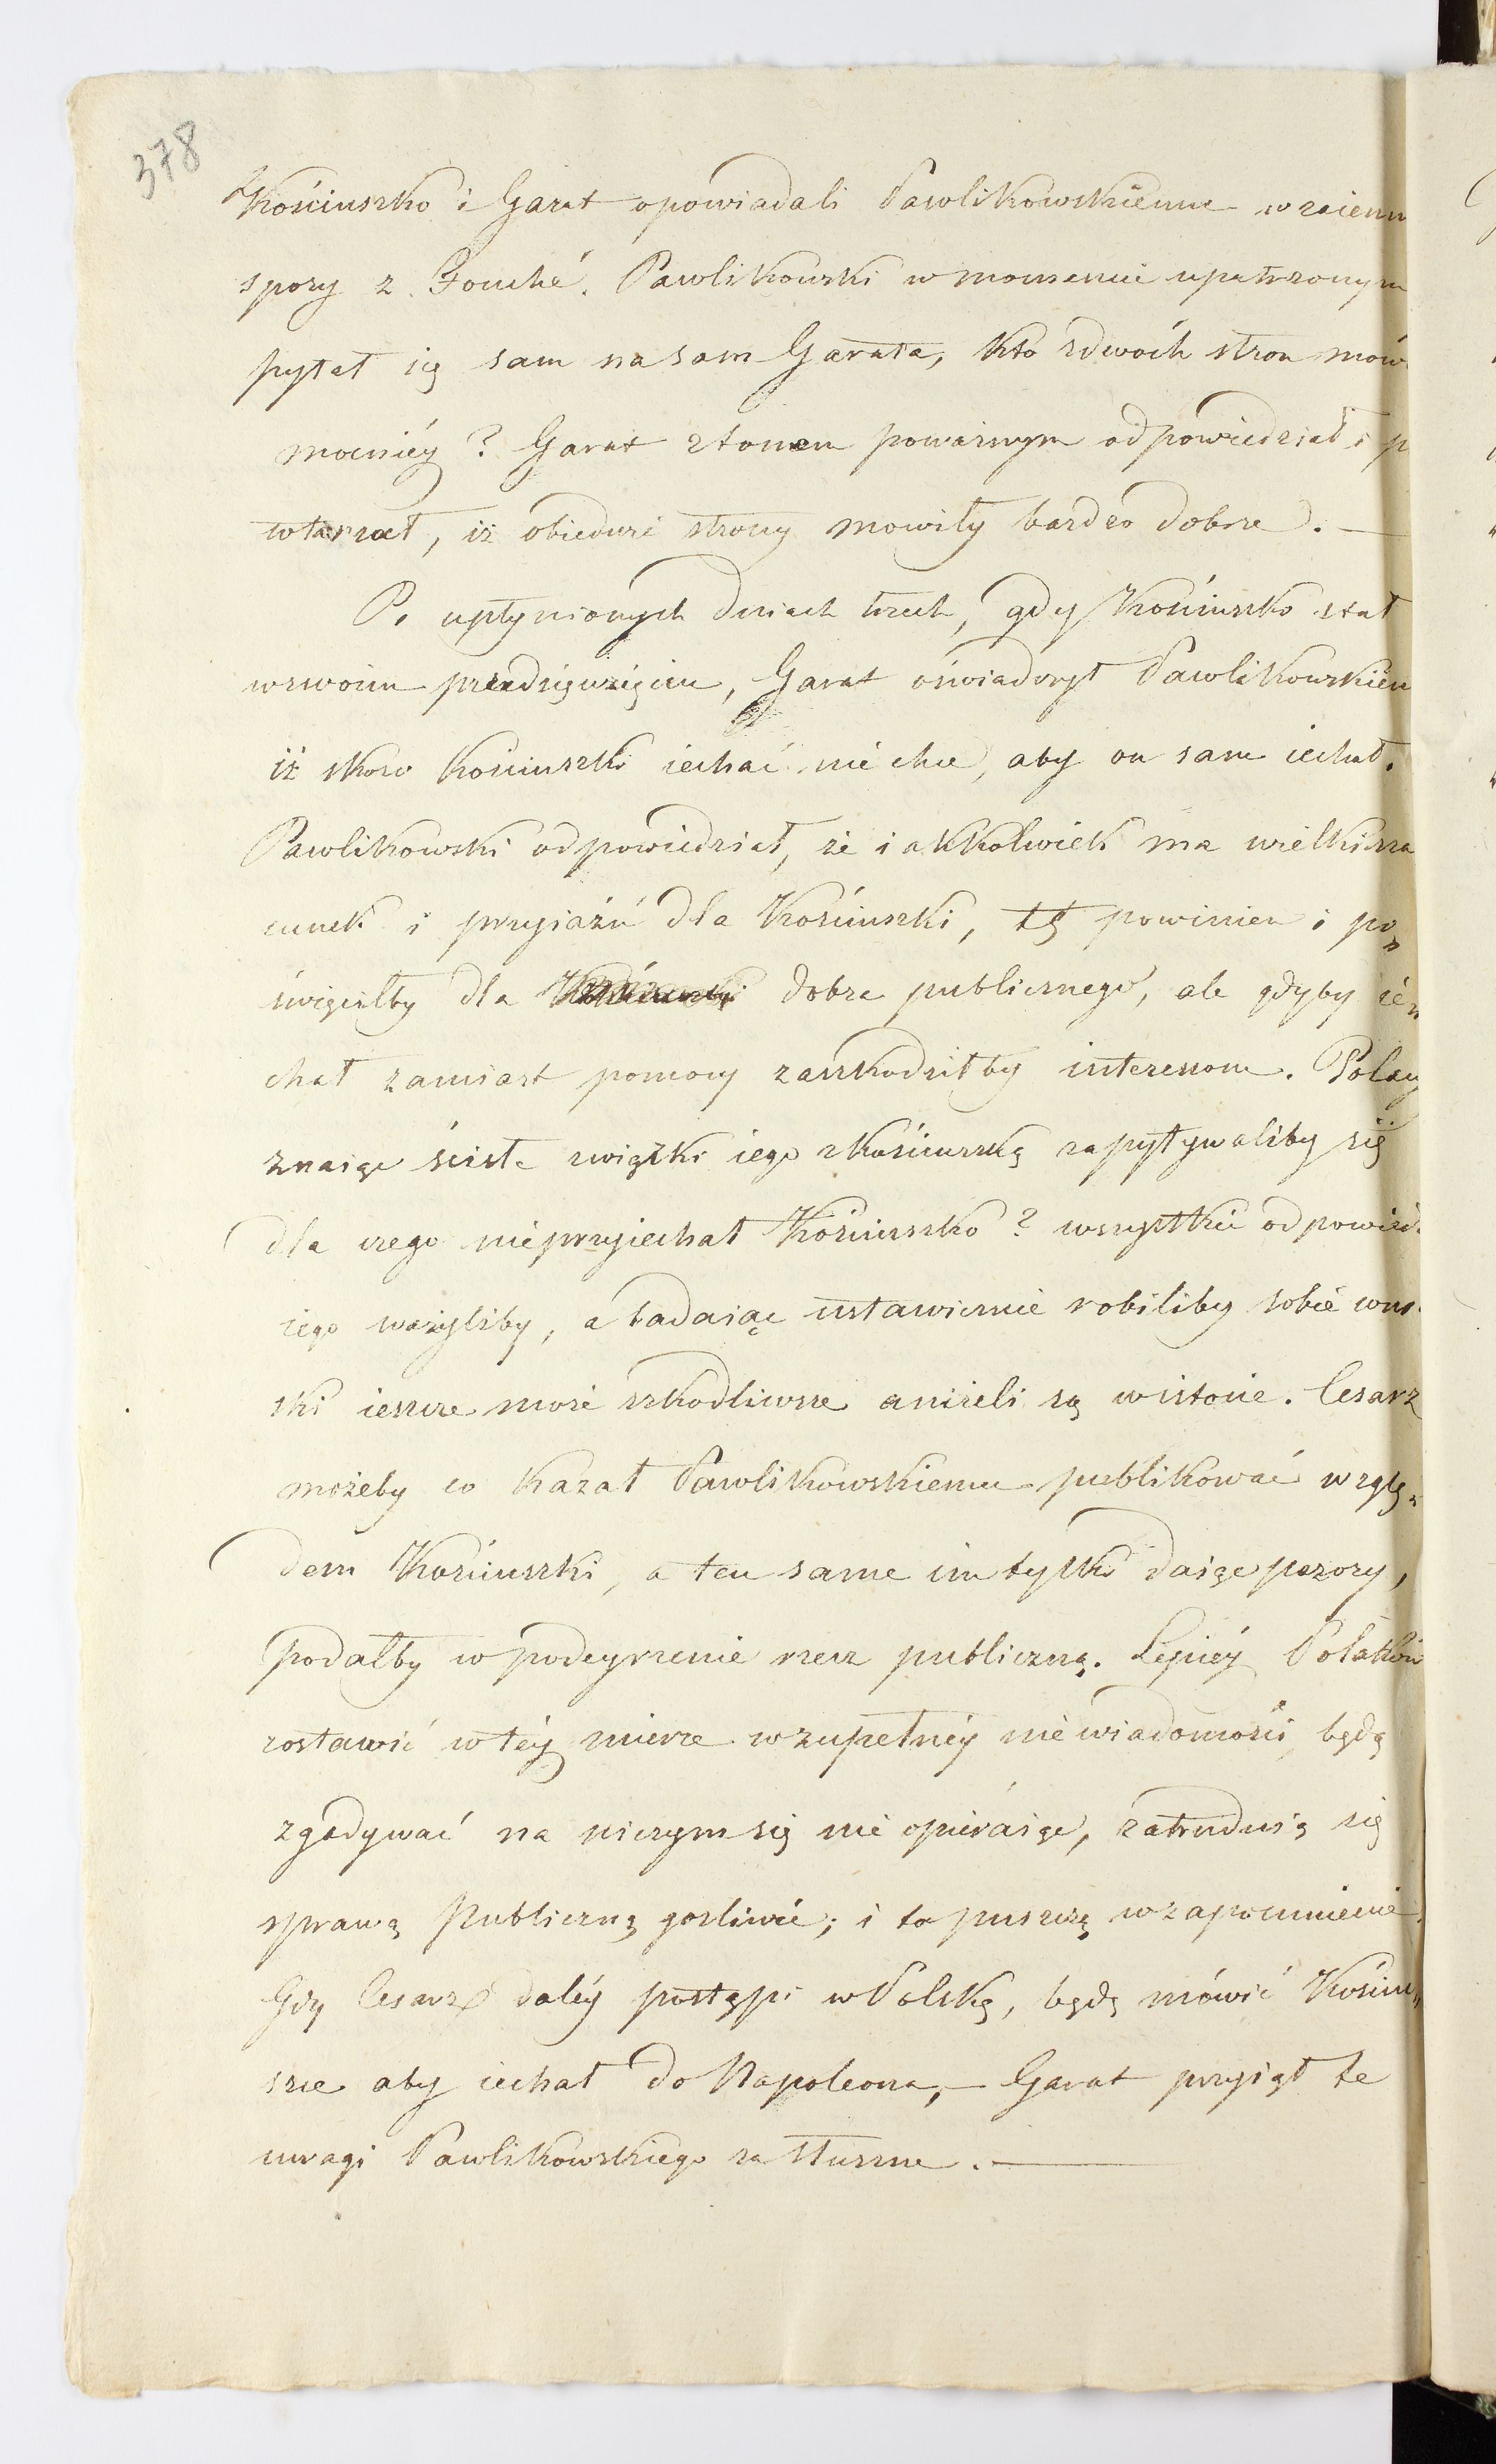 378
Kościuszko i Garat opowiadali Pawlikowskiemu wzaiemn
spory z Fouché. Pawlikowski w momencie upatrzonym
pytał się sam na sam Garata, kto zdwóch stron mów
mocniéy? Garat ztonem poważnym odpowiedział i p
wtarzał, iż obiedwie strony mowiły bardzo dobrze. —
Po upłynionych dniach trzech, gdy Kościuszko stał
wswoim przedsięwzięciu, Garat oświadczył Pawlikowskiem
iż skoro Kościuszko iechać nie chce, aby on sam iechał.
Pawlikowski odpowiedział, że iakkolwiek ma wielki sza
cunek i przyiaźń dla Kościuszki, tę powinien i po„
święciłby dla dobra publicznego, ale gdyby ie„
chał zamiast pomocy zaszkodziłby interessom. Polacy
znaiąc ścisłe związki iego zKościuszką zapytywaliby się
dla czego nieprzyiechał Kościuszko? wszystkie odpowied
iego ważyliby, a badaiąc ustawicznie robiliby sobie wnio
ski ieszcze może szkodliwsze aniżeli są wistocie. Cesarz
możeby co kazał Pawlikowskiemu publikować wzglę„
dem Kościuszki, a ten same im tylko daiąc pozory,
podałby w podeyrzenie rzecz publiczną. Lepiéy Polaków
zostawić wtéy mierze wzupełnéy niewiadomości, będą
zgadywać na niczym się nie opieraiąc, zatrudnią się
sprawą publiczną gorliwie; i to puszczą wzapomnienie.
Gdy Cesarz daléy postąpi wPolskę, będę mówić Kościu„
szce aby iechał do Napoleona, — Garat przyiął te
uwagi Pawlikowskiego za słuszne. —